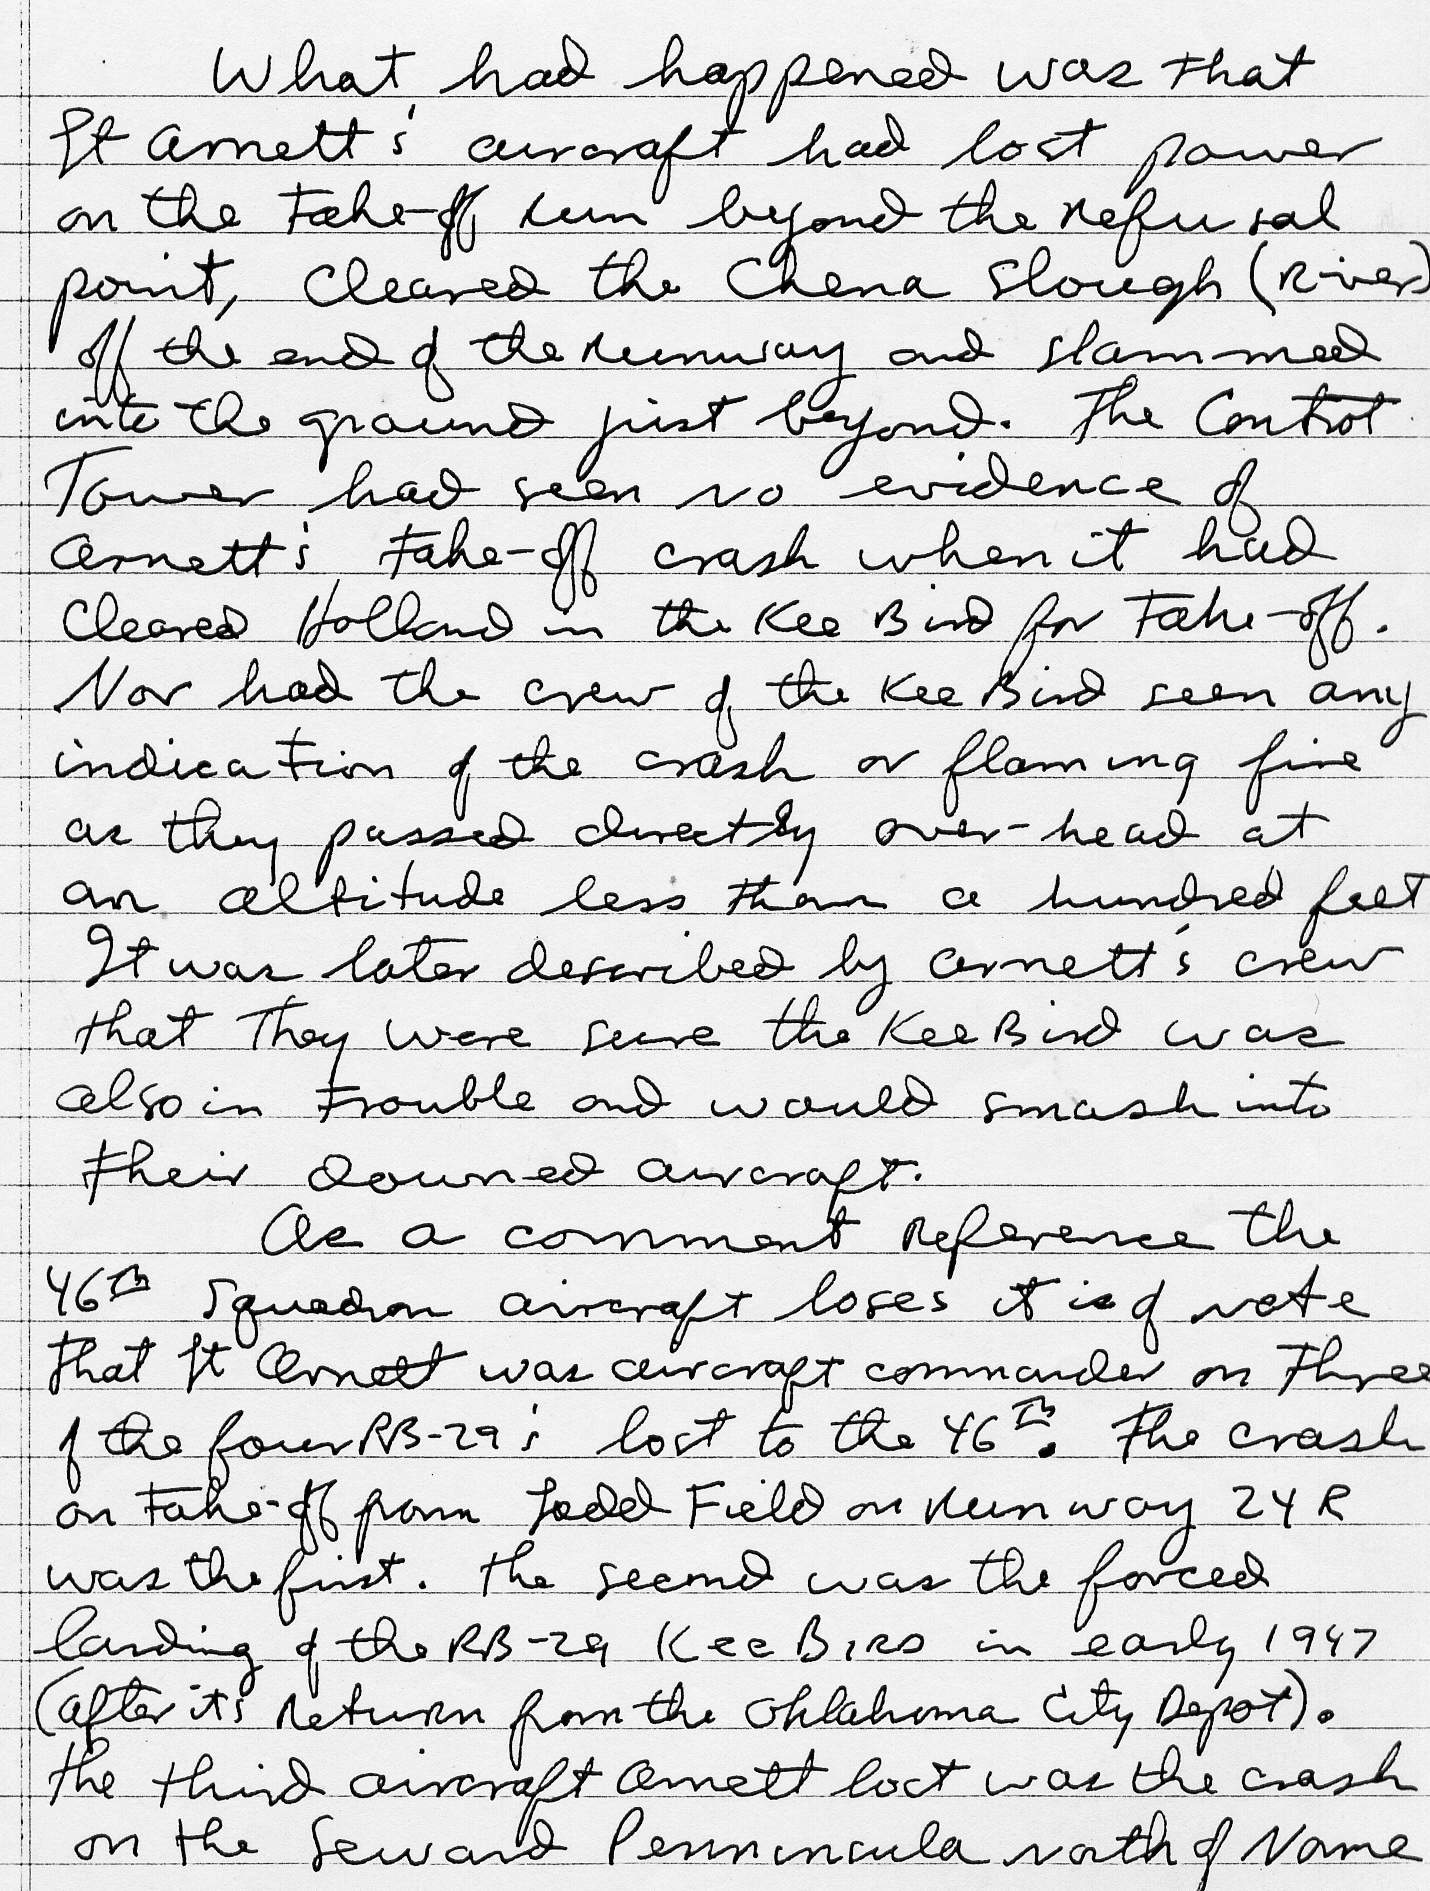 What had happened was that
Lt Arnett's aircraft had lost power
on the take-off run beyond the refusal
point, cleared the Chena Slough (River)
off the end of the runway and slammed
into the ground just beyond. The Control
Tower had seen no evidence of
Arnett's take-off crash when it had
cleared Holland in the Kee Bird for take-off.
Nor had the crew of the Kee Bird seen any
indication of the crash or flaming fire
as they passed directly over-head at
an altitude less than a hundred feet
It was later described by Arnett's crew
that they were sure the Kee Bird was
also in trouble and would smash into
their downed aircraft.
As a comment reference the
46th Squadron aircraft loses it is of note
that Lt Arnett was aircraft commander on three
of the four RB-29's lost to the 46th. The crash
on take-off from Ladd Field on runway 24R
was the first. The second was the forced
landing of the RB-29 Kee Bird in early 1947
(after it's return from the Oklahoma City Depot).
The third aircraft Arnett lost was the crash
on the Seward Pennincula north of Nome